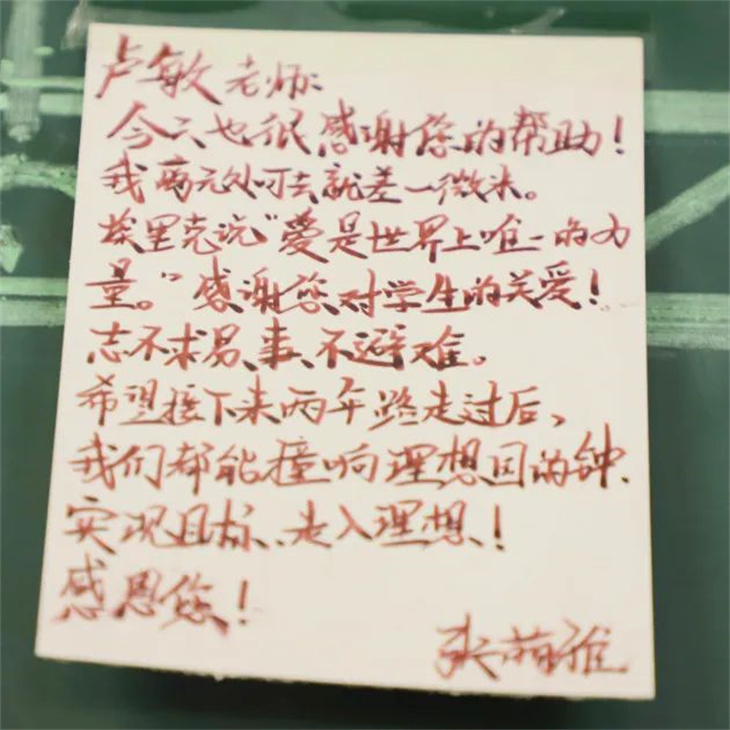 卢敏老师:
今天也很感谢您的帮助!
我离元处可去就差一微米。
埃里克说“爱是世界上唯一的力
量。”感谢您对学生的关爱!
志不求易、事不避难。
希望接下来两年路走过后,
我们都能撞响理想国的钟、
实现目标、走入理想!
感恩您!
张萌雅